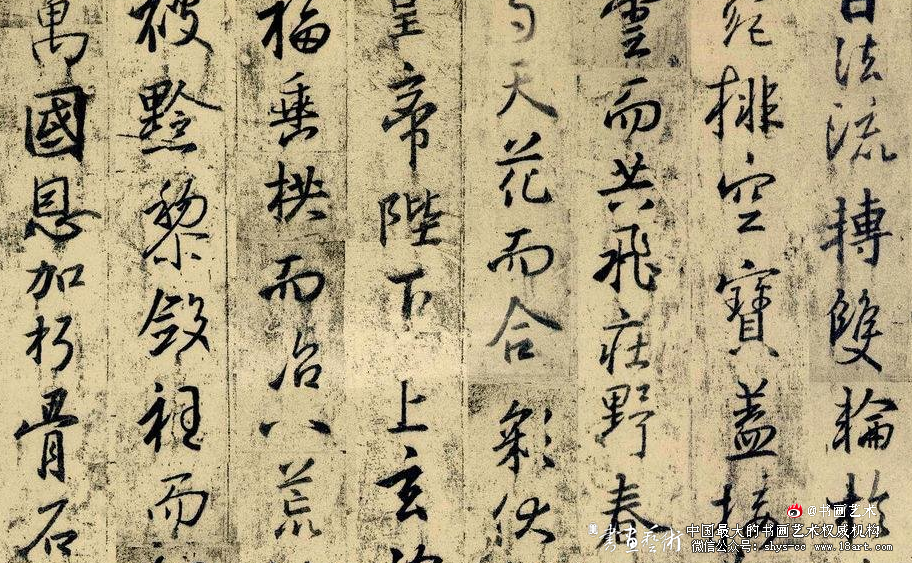 日法流轉雙輪於
菀排空寶蓋接
雲而共飛莊野春
与天花而合彩伏
皇帝陛下上玄資
福垂拱而治八荒
被黔黎斂衽而
萬國恩加朽骨石
@书画艺术
書畫藝術
中国最大的书画艺术权威机构
微信公众号：shys-cc www.18art.com